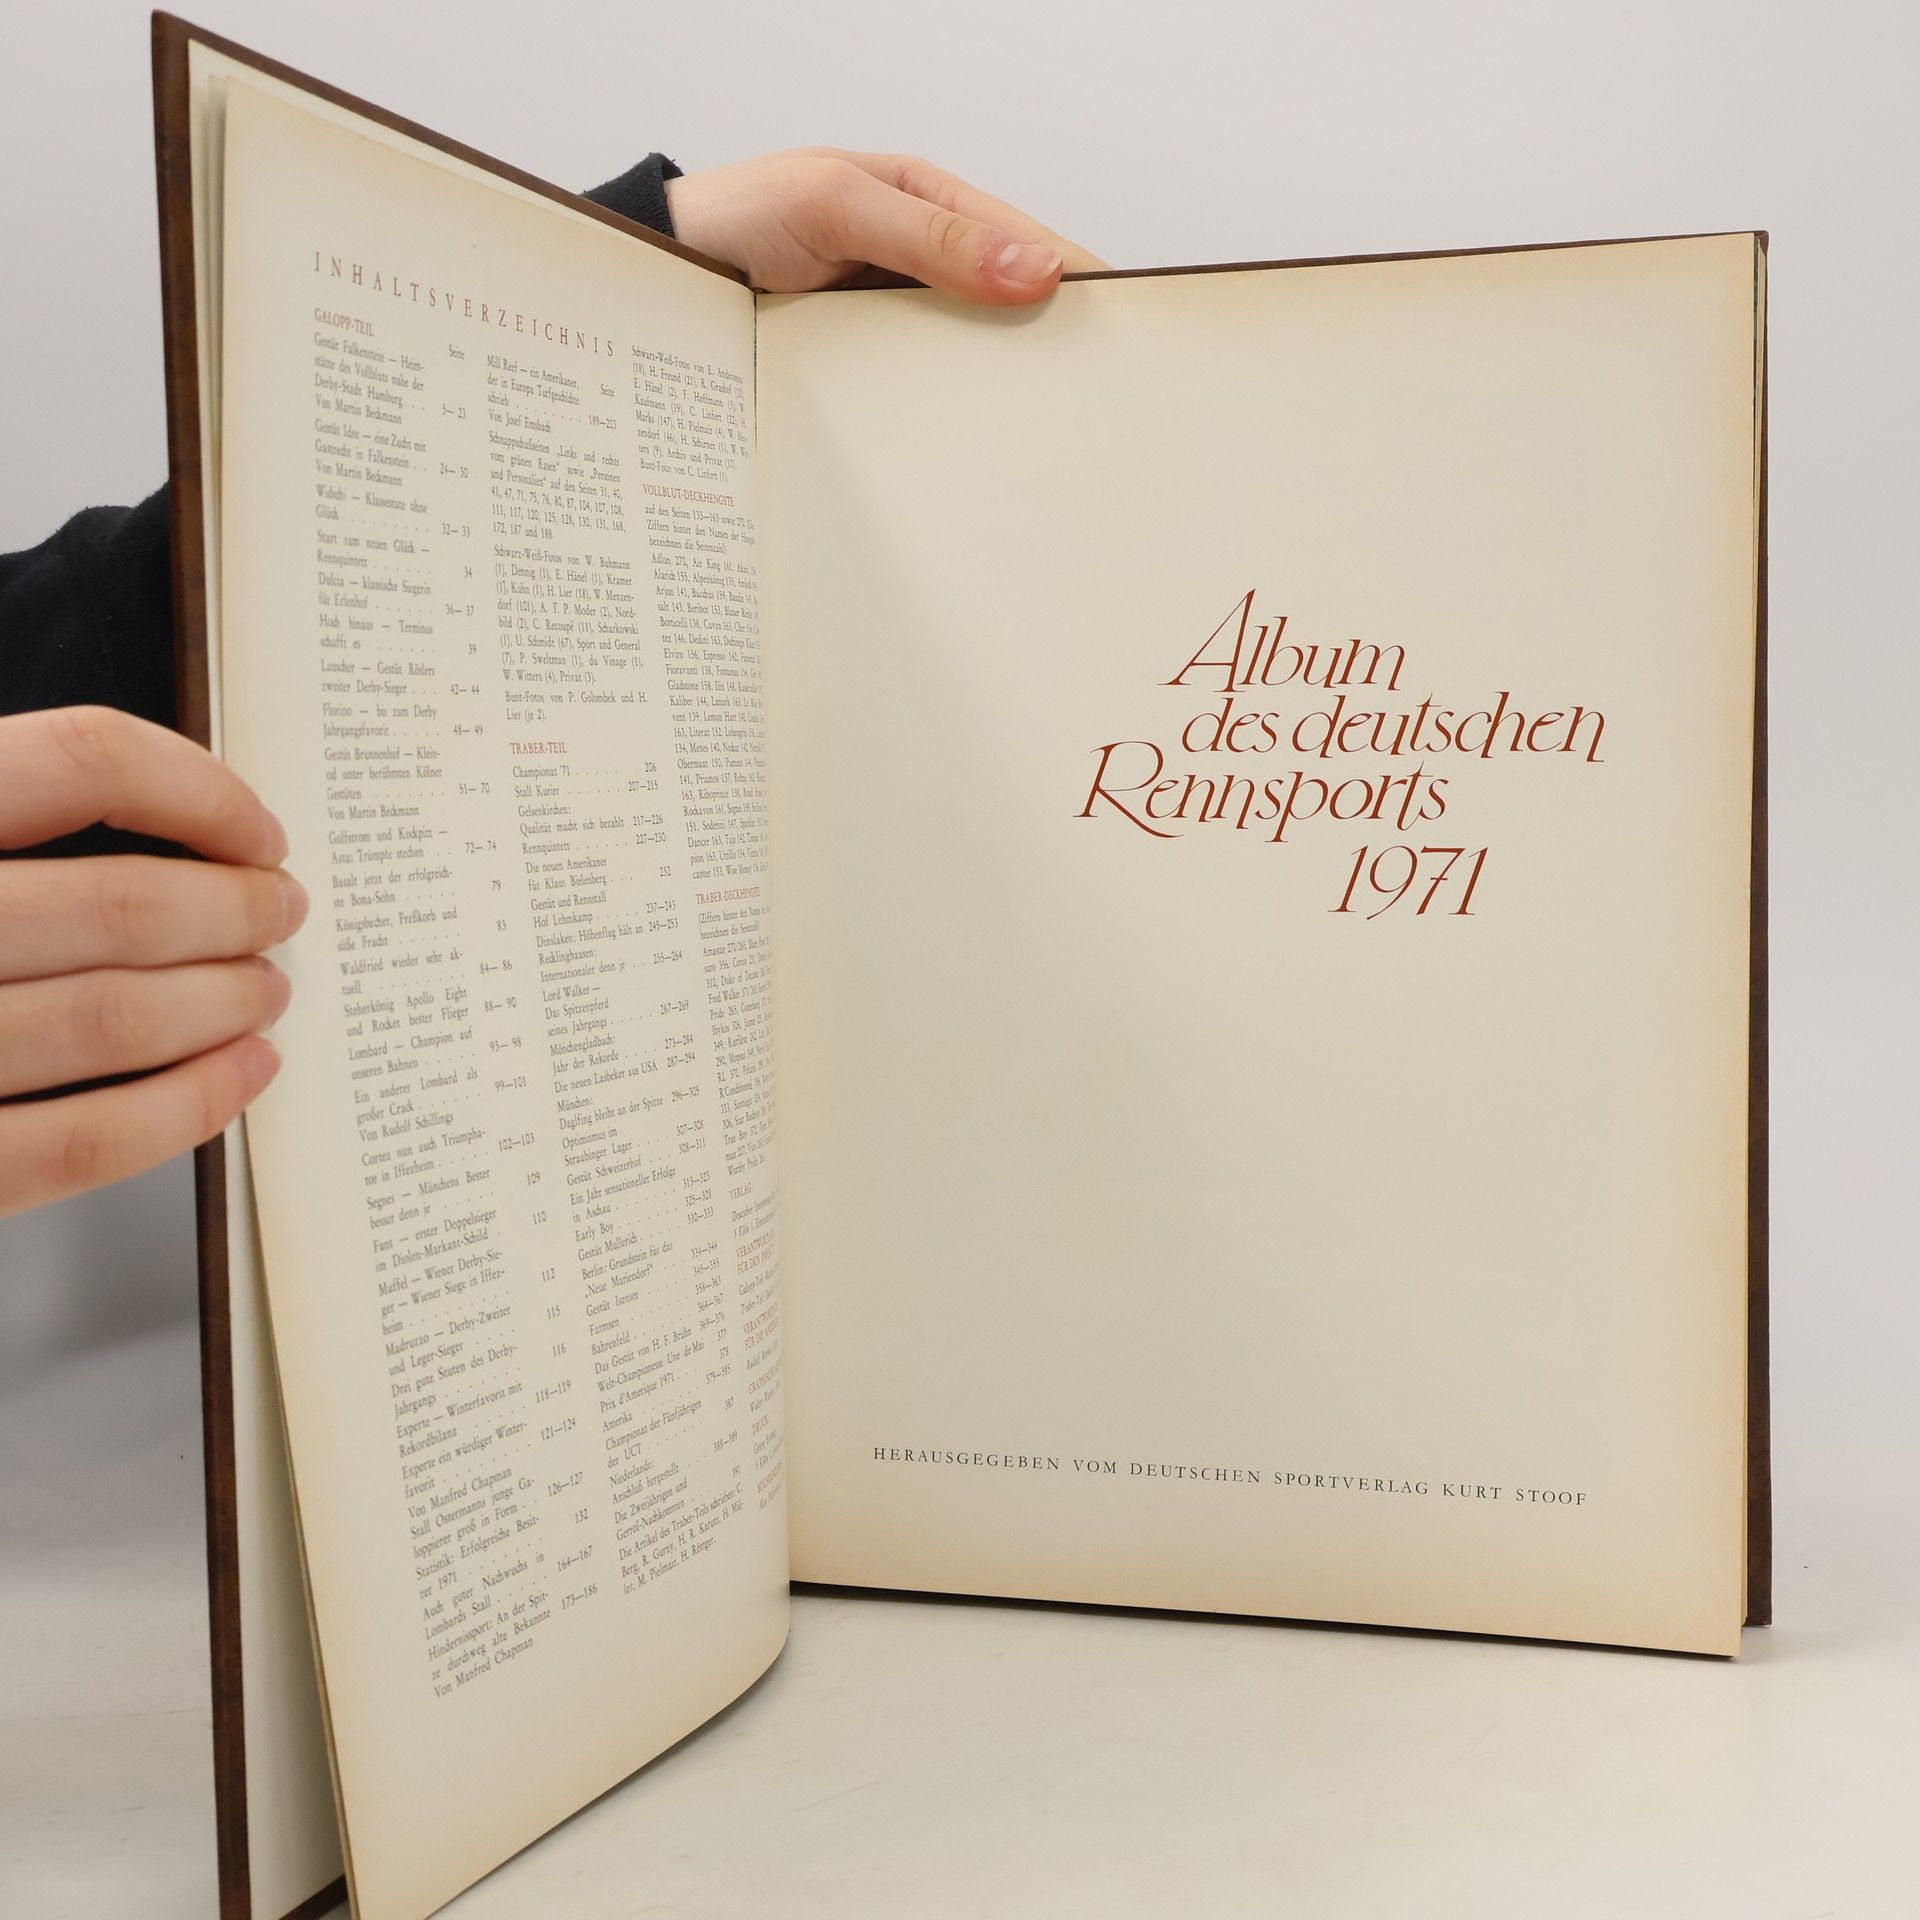 INHALTSVERZEICHNIS
GALOPP-TEIL
Seite
Gestüt Falkenstein — Heim-
stätte des Vollbluts nahe der
Derby-Stadt Hamburg . . 5— 23
Von Martin Beckmann
Gestüt Idee — eine Zucht mit
Gastrecht in Falkenstein . . 24— 30
Von Martin Beckmann
Widschi — Klassestute ohne
Glück . . . . . . . . 32— 33
Start zum neuen Glück —
Rennquintett . . . . . . . 34
Dulcia — klassische Siegerin
für Erlenhof . . . . . . 36— 37
Hoch hinaus — Terminus
schafft es . . . . . . 39
Lauscher — Gestüt Röslers
zweiter Derby-Sieger . . . 42— 44
Florino — bis zum Derby
Jahrgangsfavorit . . . . . 48— 49
Gestüt Brunnenhof — Klein-
od unter berühmten Kölner
Gestüten . . . . . . . 51— 70
Von Martin Beckmann
Golfstrom und Kockpitt —
Astas Trümpfe stechen . . 72— 74
Basalt jetzt der erfolgreich-
ste Bona-Sohn . . . . . 79
Königsbecher, Freßkorb und
süße Fracht . . . . . . 83
Waldfried wieder sehr ak-
tuell . . . . . . . . 84— 86
Steherkönig Apollo Eight
und Rocket bester Flieger 88— 90
Lombard — Champion auf
unseren Bahnen . . . . . 93— 98
Ein anderer Lombard als
großer Crack . . . . . . 99—101
Von Rudolf Schillings
Cortez nun auch Triumpha-
tor in Iffezheim . . . . . 102—103
Segnes — Münchens Bester
besser denn je . . . . . 109
Fant — erster Doppelsieger
im Diolen-Markant-Schild . 110
Muffel — Wiener Derby-Sie-
ger — Wiener Siege in Iffez-
heim . . . . . . . . 112
Madruzzo — Derby-Zweiter
und Leger-Sieger . . . . 115
Drei gute Stuten des Derby-
Jahrgangs . . . . . . . 116
Experte — Winterfavorit mit
Rekordbilanz . . . . . . 118—119
Experte ein würdiger Winter-
favorit . . . . . . . 121—124
Von Manfred Chapman
Stall Ostermanns junge Ga-
loppierer groß in Form . . 126—127
Statistik: Erfolgreiche Besit-
zer 1971 . . . . . . . 132
Auch guter Nachwuchs in
Lombards Stall . . . . . 164—167
Hindernissport: An der Spit-
ze durchweg alte Bekannte 173—186
Von Manfred Chapman
Mill Reef — ein Amerikaner,
der in Europa Turfgeschichte Seite
schrieb . . . . . . . . 189—203
Von Josef Emsbach
Schnappschußseiten „Links und rechts
vom grünen Rasen“ sowie „Personen
und Personalien“ auf den Seiten 31, 40,
41, 47, 71, 75, 76, 80, 87, 104, 107, 108,
111, 117, 120, 125, 128, 130, 131, 168,
172, 187 und 188.
Schwarz-Weiß-Fotos von W. Buhmann
(1), Dennig (1), E. Hänel (1), Kramer
(1), Kuhn (1), H. Lier (18), W. Menzen-
dorf (101), A. T. P. Moder (2), Nord-
bild (2), C. Recoupé (11), Scharkowski
(1), U. Schmidt (67), Sport and General
(7), P. Sweltman (1), du Vinage (1),
W. Witters (4), Privat (3).
Bunt-Fotos von P. Golombek und H.
Lier (je 2).
TRABER-TEIL
Championat '71 . . . . . 206
Stall Kurier . . . . . . 207—215
Gelsenkirchen:
Qualität macht sich bezahlt 217—226
Rennquintett . . . . . . 227—230
Die neuen Amerikaner
für Klaus Bielenberg . . . 232
Gestüt und Rennstall
Hof Lehmkamp . . . . . 237—243
Dinslaken: Höhenflug hält an 245—253
Recklinghausen:
Internationaler denn je . . 255—264
Lord Walker —
Das Spitzenpferd
seines Jahrgangs . . . . . 267—269
Mönchengladbach:
Jahr der Rekorde . . . . 273—284
Die neuen Lasbeker aus USA 287—294
München:
Daglfing bleibt an der Spitze 296—305
Optimismus im
Straubinger Lager . . . . 307—308
Gestüt Schweizerhof . . . 308—311
Ein Jahr sensationeller Erfolge
in Aschau . . . . . . . 313—323
Early Boy . . . . . . . 325—328
Gestüt Mullerich . . . . . 330—333
Berlin: Grundstein für das
„Neue Mariendorf“ . . . 334—344
Gestüt Isensee . . . . . 345—355
Farmsen . . . . . . . 358—363
Bahrenfeld . . . . . . 364—367
Das Gestüt von H. F. Bruhn 369—376
Welt-Championesse Une de Mai 377
Prix d'Amerique 1971 . . . 378
Amerika . . . . . . . 379—385
Championat der Fünfjährigen
der UCT . . . . . . . 387
Niederlande:
Anschluß hergestellt . . . 388—389
Die Zweijährigen und
Gerrol-Nachkommen . . . . 391
Die Artikel des Traber-Teils schrieben: C.
Berg, R. Gurny, H. R. Karutz, H. Mül-
ler, M. Pielmair, H. Röttger.
Schwarz-Weiß-Fotos von E. Andersson
(18), H. Freund (21), R. Grashof (12),
E. Hänel (2), F. Hoffmann (3), W.
Kaufmann (19), C. Linfert (22), H.
Marks (147), H. Pielmair (4), W. Men-
zendorf (46), H. Schirner (1), W. Wit-
ters (9), Archiv und Privat (10).
Bunt-Foto von C. Linfert (1).
VOLLBLUT-DECKHENGSTE
auf den Seiten 133—163 sowie 270. (Die
Ziffern hinter den Namen der Hengste
bezeichnen die Seitenzahl)
Adlon 270, Air King 161,
Alarich 155, Alpenkönig 135,
Arjon 141, Bacchus 159,
salt 143, Beribot 153, Blauer Reiter
Botticelli 138, Cavan 163,
tez 146, Dedini 163, Dschingis Khan
Elviro 156, Espresso 142,
Fioravanti 138, Fontanus 154,
Gladstone 158, Ilix 148,
Kaliber 144, Lanark 163,
vent 139, Lemon Hart 140,
163, Literat 152, Lohengrin
134, Menes 140, Neckar 142,
Obermaat 150, Pamino 144,
141, Priamos 137,
163, Riboprince 138,
Rockavon 161, Segnes 159,
151, Soderini 147,
Dancer 163, Tajo 142,
pion 163, Utrillo 154,
canter 153, Wise Money
TRABER-DECKHENGSTE
(Ziffern hinter den Namen der
bezeichnen die Seitenzahl)
Amastar 270,
saro 356, Corsio 251,
310, Duke of Decatur
Fred Walker 371,
Pride 265, Gutenberg
Ibykos 306,
349, Kurfürst 292,
290, Mopsus 349,
RL 370, Polaris
R'Conditionné
333, Santiago
306, Star Rodney
True Boy 372,
man
Worthy Pride 265
VERLAG:
Deutscher Sportverlag
5 Köln 1,
VERANTWORTLICH
FÜR DEN INHALT:
Galopp-Teil:
Traber-Teil:
VERANTWORTLICH
FÜR DIE
Rudolf
DRUCK:
Album
des deutschen
Rennsports
1971
HERAUSGEGEBEN VOM DEUTSCHEN SPORTVERLAG KURT STOOF